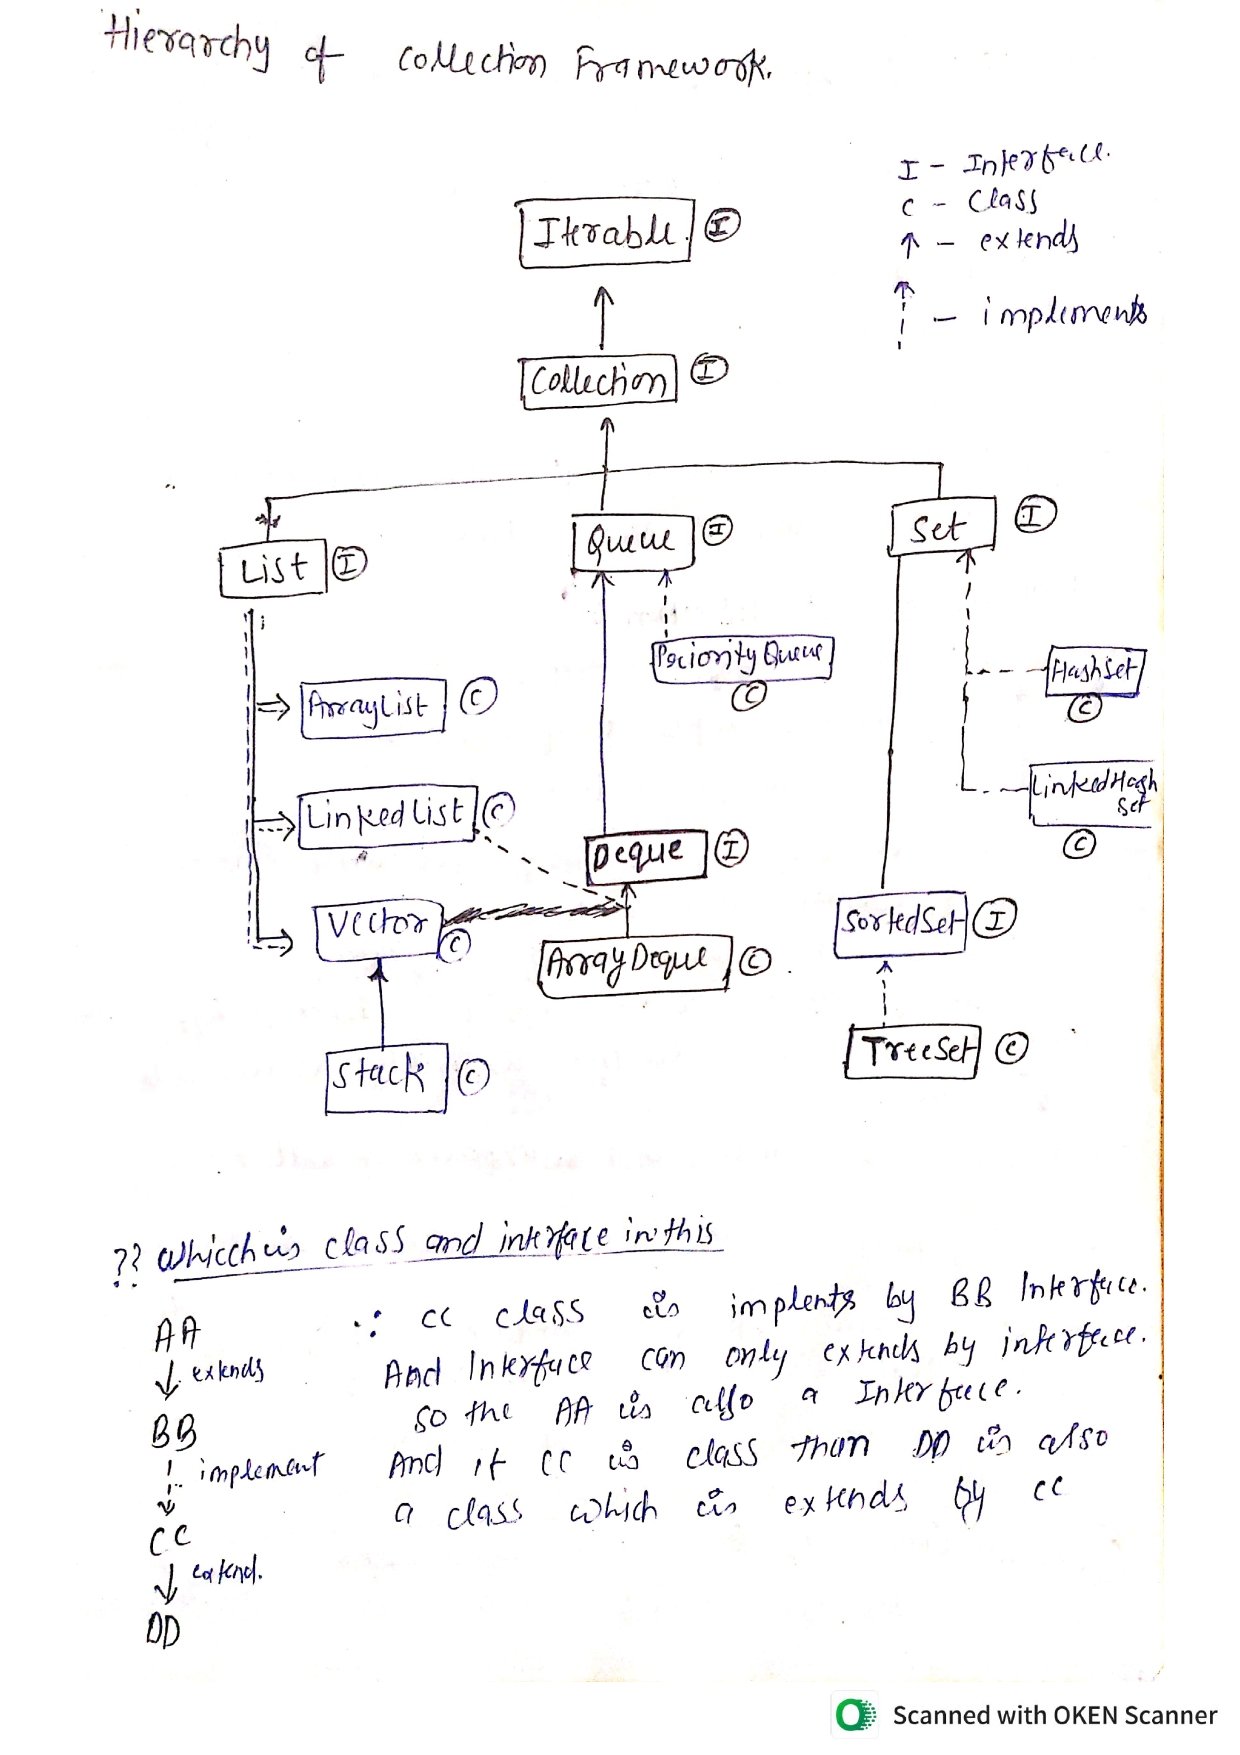 Hierarchy of Collection Framework.
I - Interface.
C - Class
↑ - extends
↑ - implements
Iterable I
Collection I
List I
Queue I
Set I
PriorityQueue C
HashSet C
ArrayList C
LinkedList C
LinkedHash
Set C
Deque I
Vector C
ArrayDeque C
SortedSet I
Stack C
TreeSet C
?? Whicch is class and interface in this
AA
↓ extends
BB
implement
CC
↓ extend.
DD
∴ CC class is implents by BB Interface.
And Interface can only extends by interface.
so the AA is also a Interface.
And if CC is class than DD is also
a class which is extends by CC
Scanned with OKEN Scanner